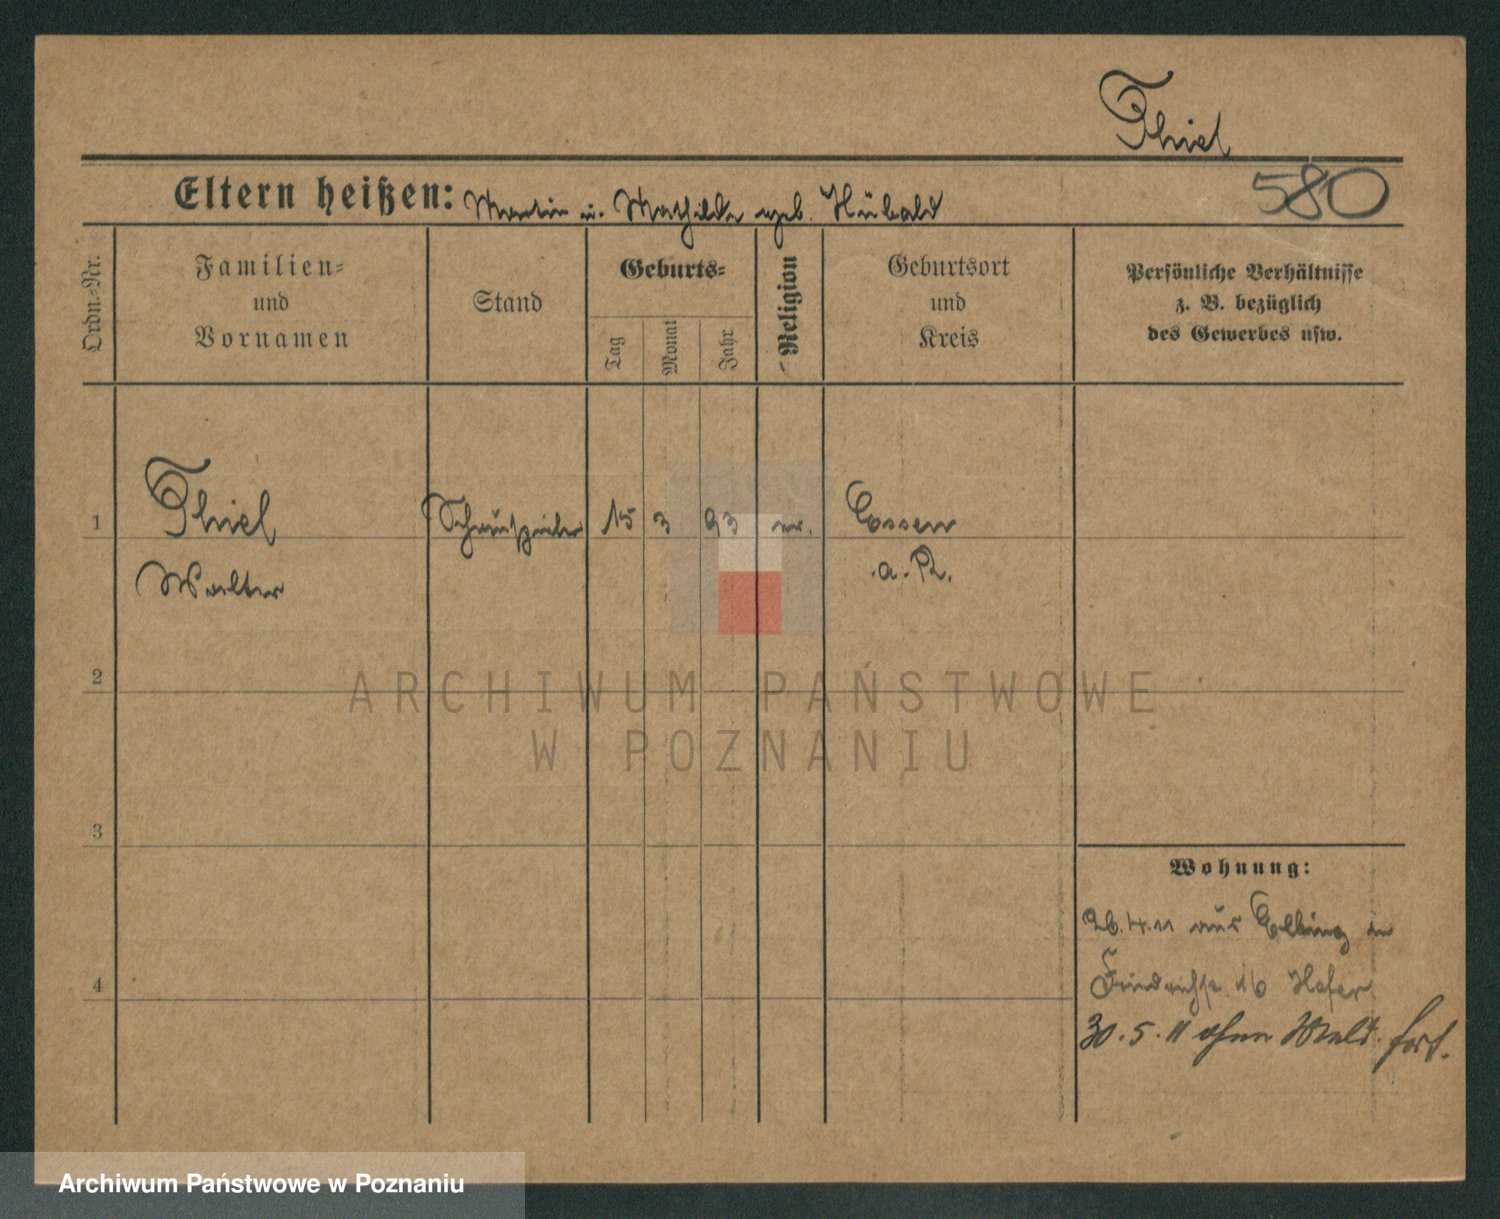 Thiel
580
Eltern heißen: Martin u. Mathilde geb. Hübald
Ordn.-Nr.
Familien-
und
Vornamen
Stand
Geburts-
Tag
Monat
Jahr
Religion
Geburtsort
und
Kreis
Persönliche Verhältnisse
z. B. bezüglich
des Gewerbes usw.
1 Thiel Schauspieler 15 3 93 ev. Essen
Walter a. R.
2
3
4
Wohnung:
26.4.11 aus Elbing in
Friedrichstr. 16 Hofer
30.5.11 ohne Meld. fort.
ARCHIWUM PAŃSTWOWE
W POZNANIU
Archiwum Państwowe w Poznaniu